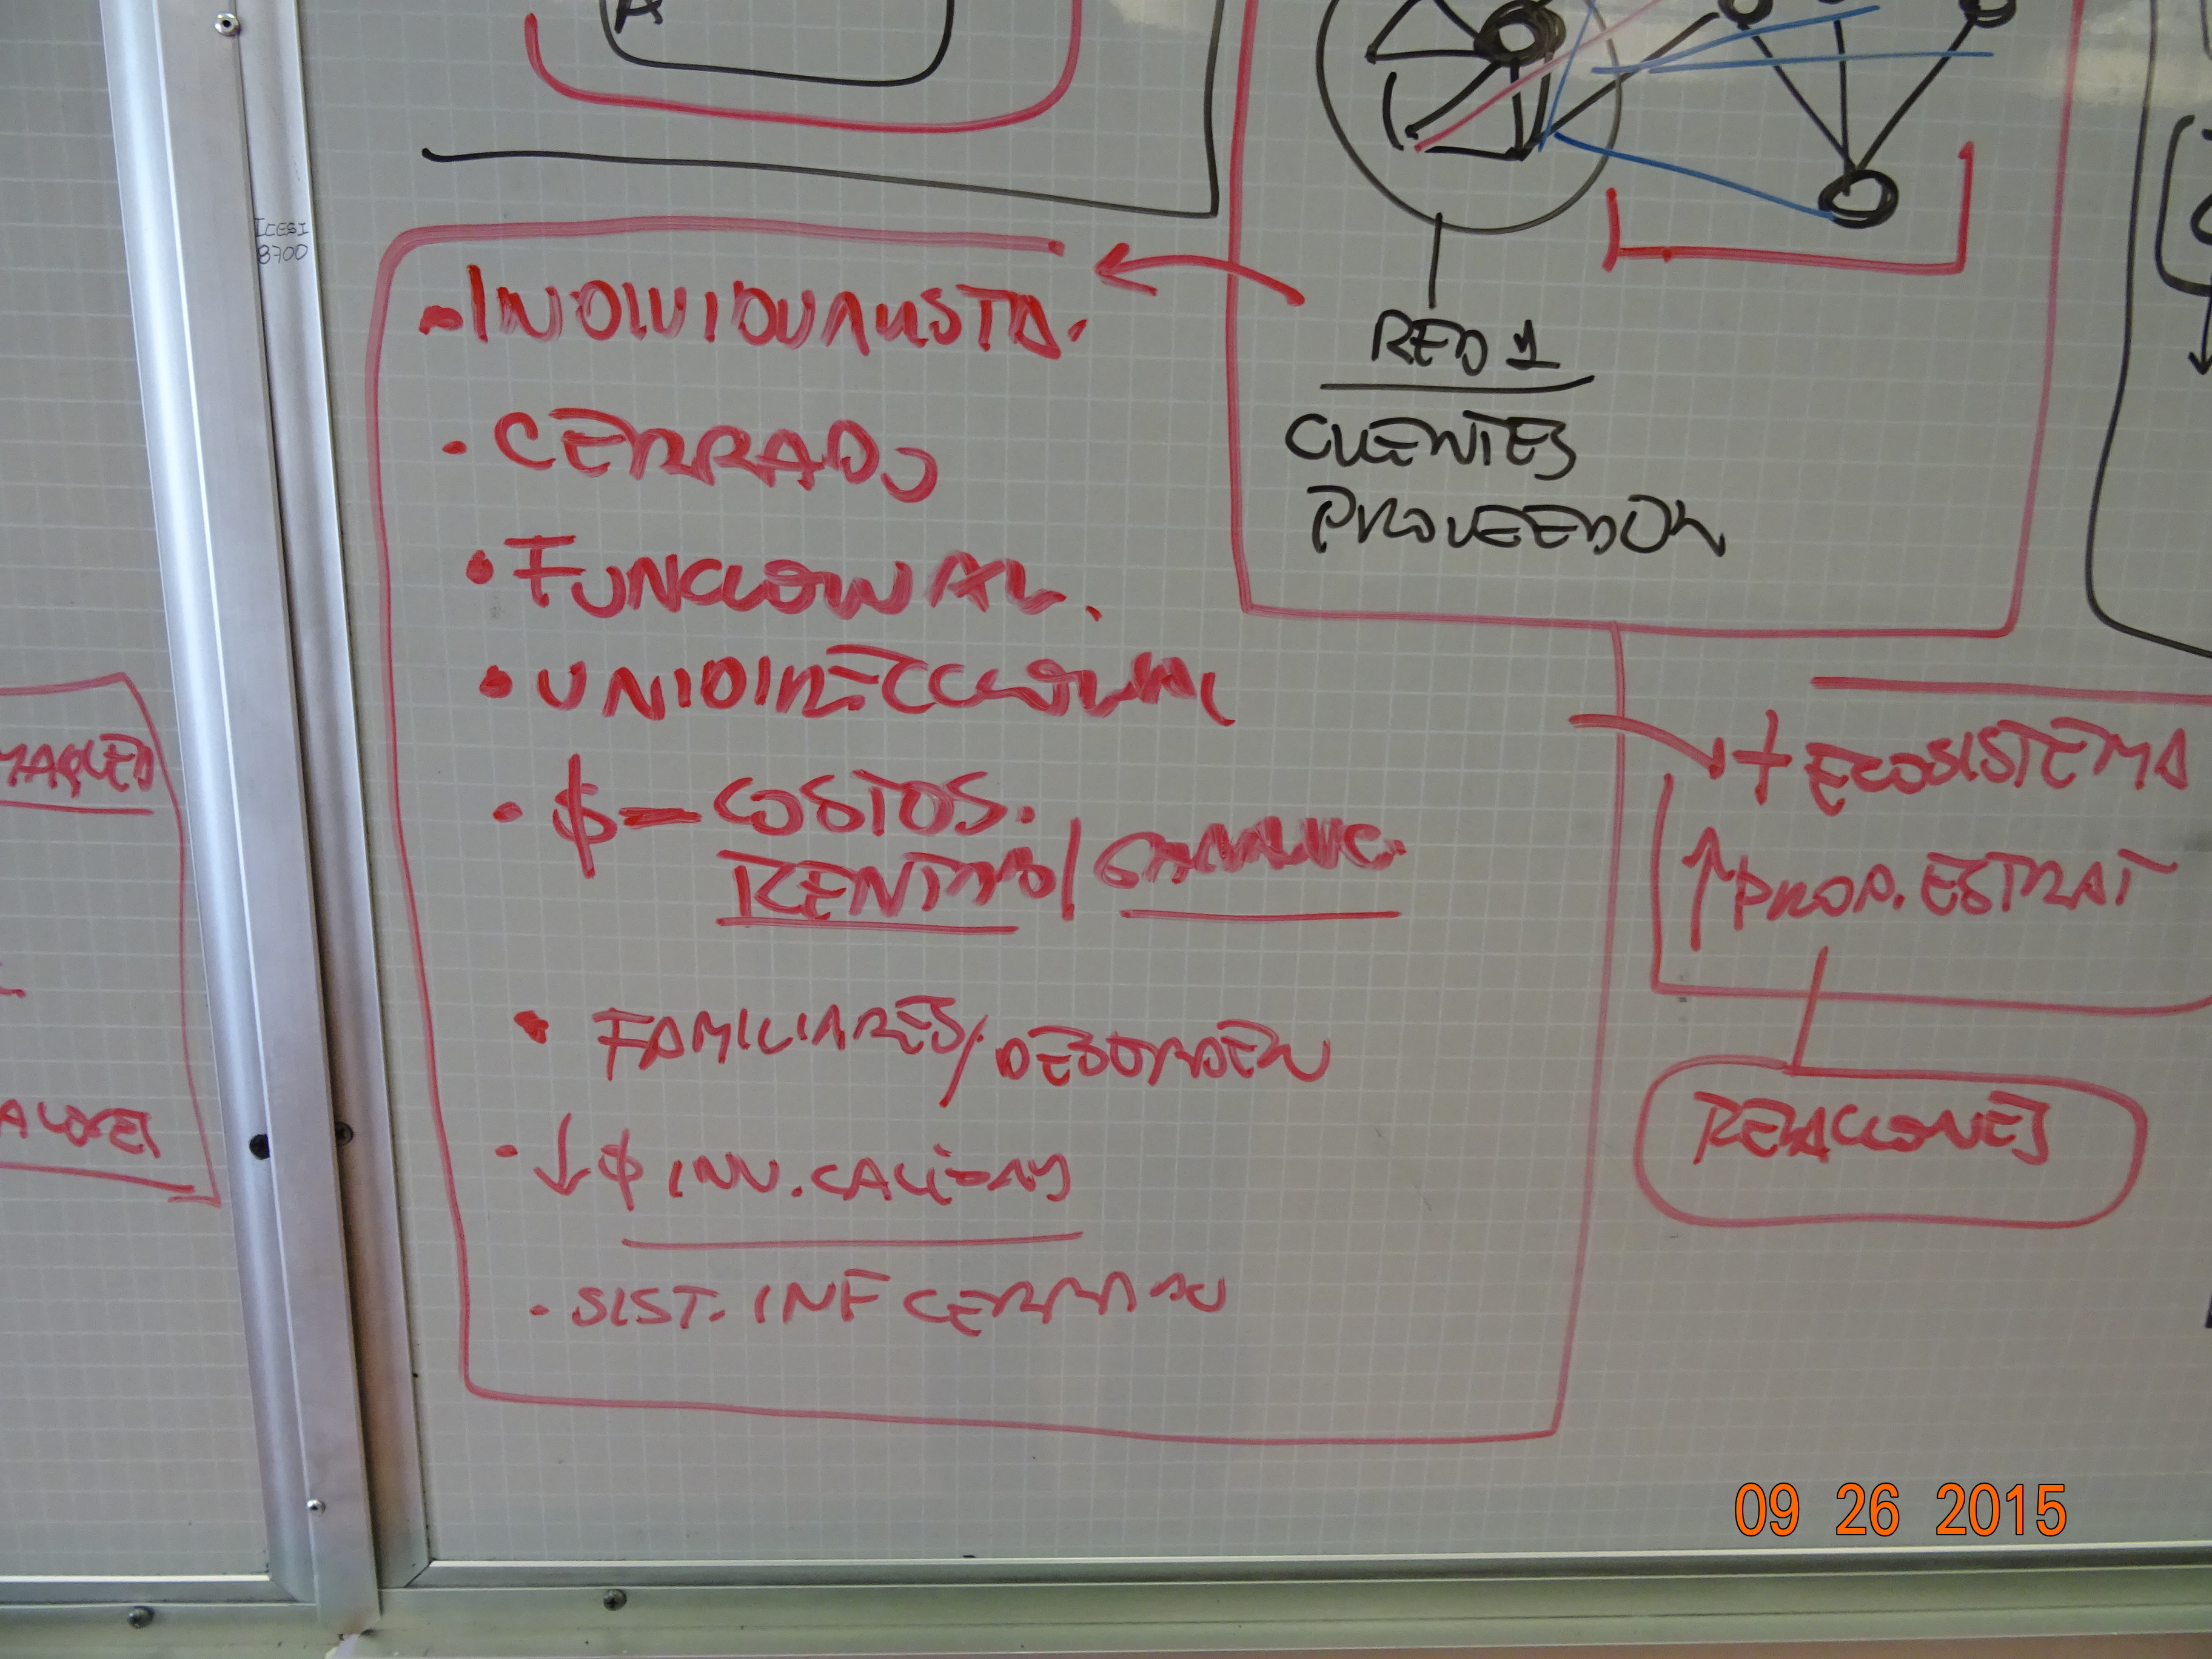 A
ICESI
8700
- INDIVIDUALISTA.
• CERRADO
• FUNCIONAL.
• UNIDIRECCIONAL
• $ - COSTOS.
RENTAB/
• FAMILIARES/DESORDEN
• ↓ $ INV. CALIDAD
• SIST. INF CERRADO
RED 1
CLIENTES
PROVEEDOR
+ ECOSISTEMA
↑ PROP. ESTRAT
RELACIONES
09 26 2015